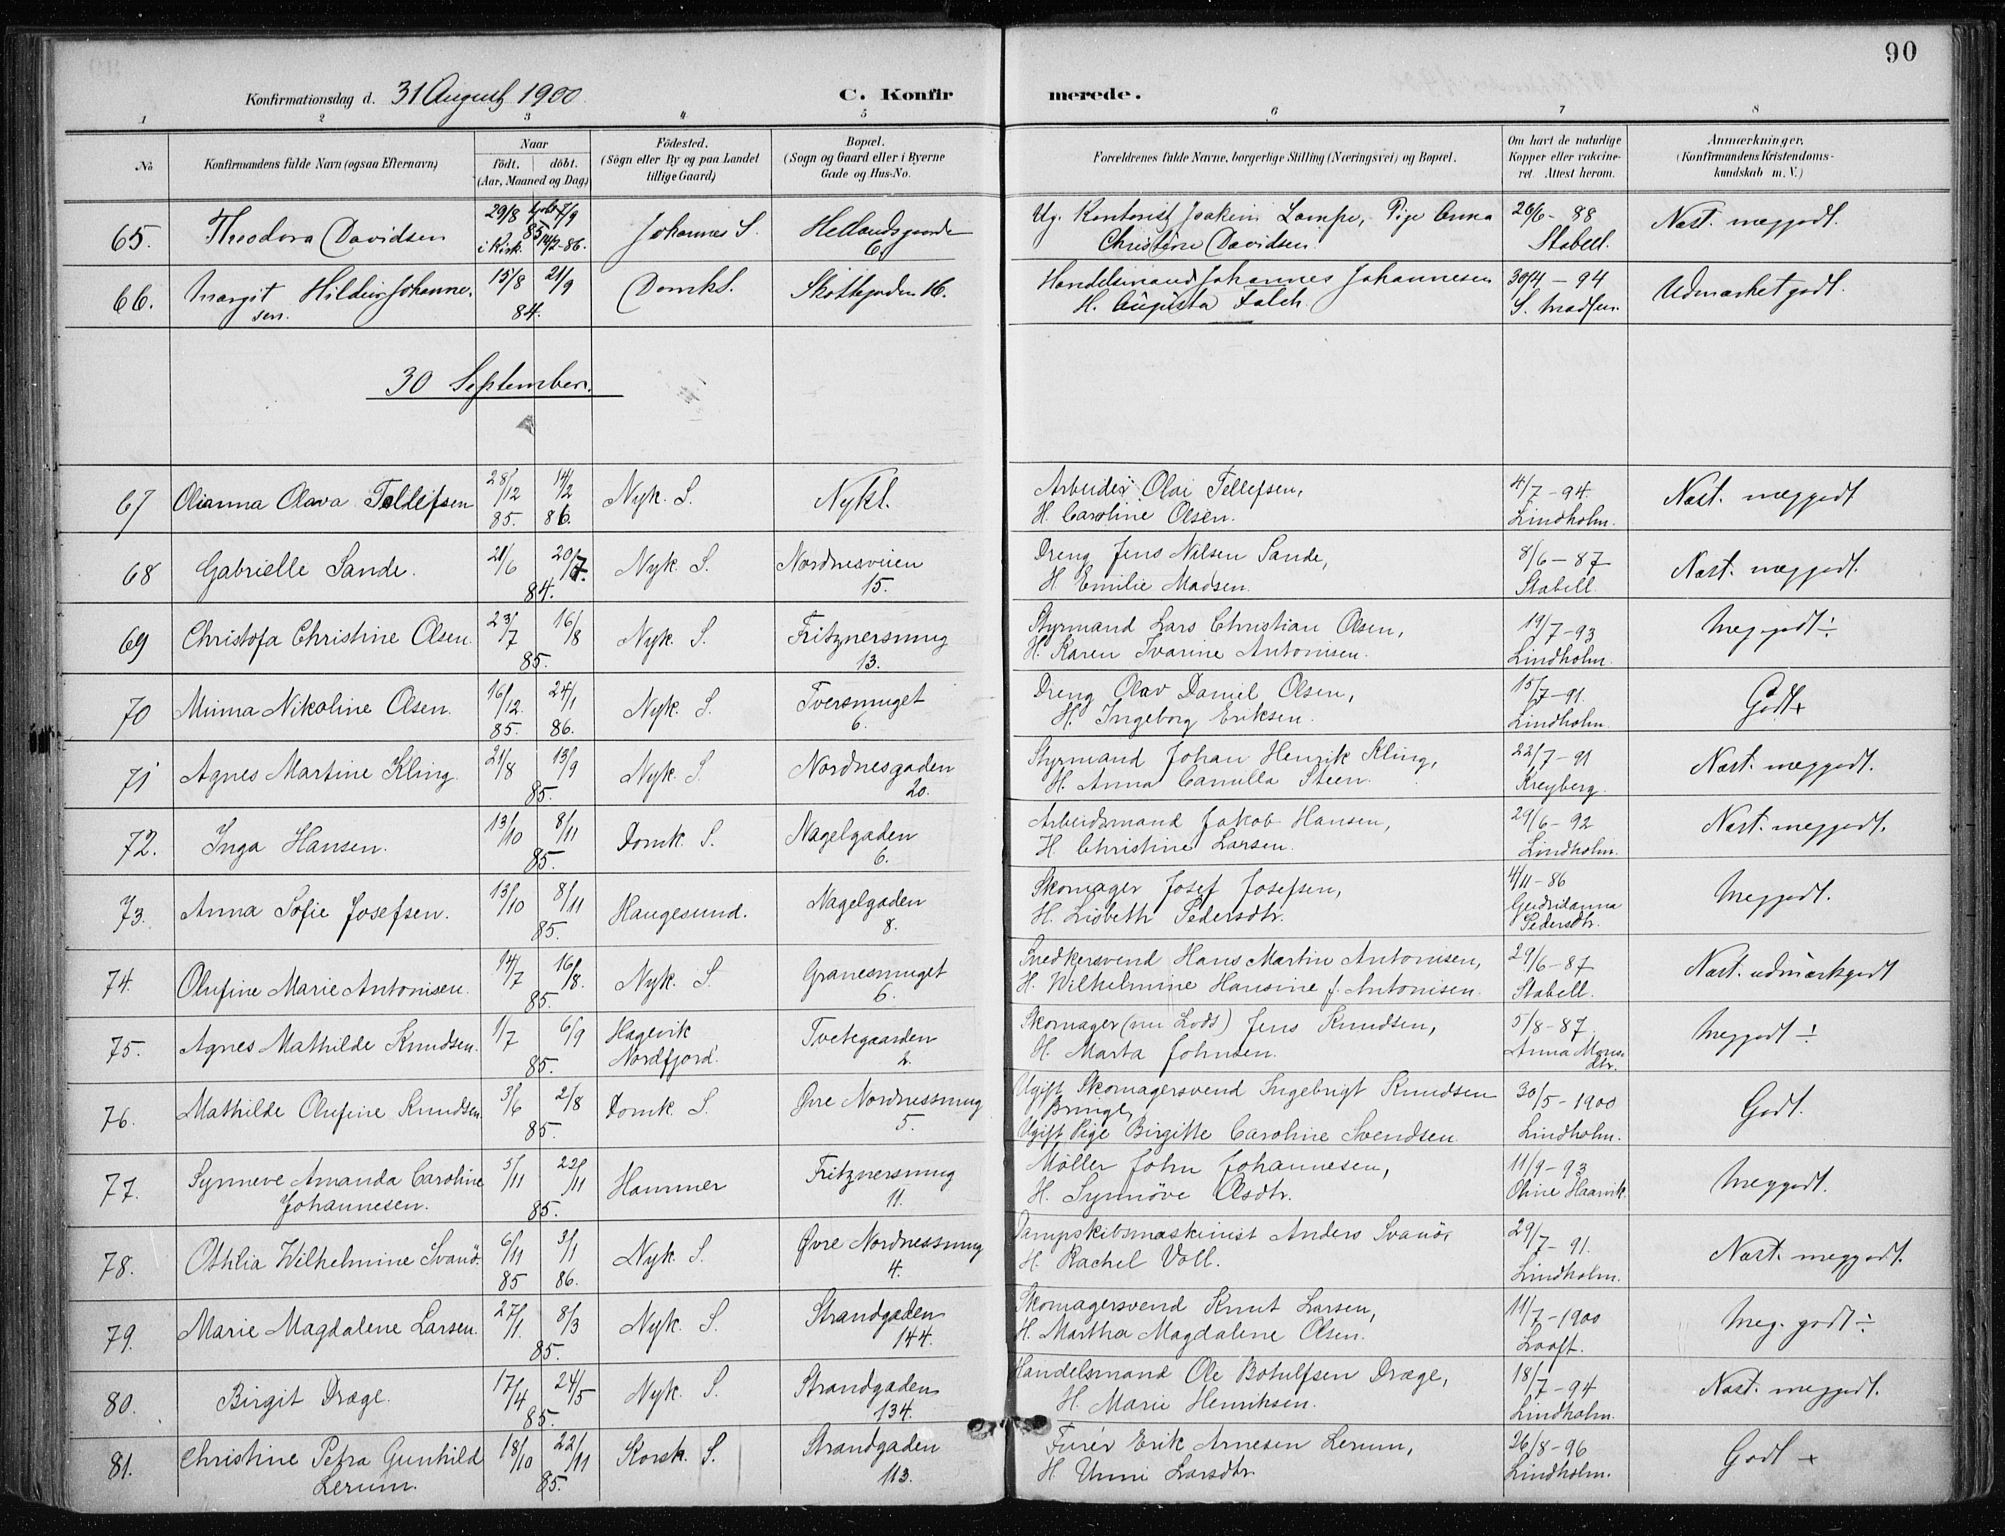 90
Konfirmationsdag d. 31 August 1900. C. Konfirmerede.
1 2 3 4 5 6 7 8
No Konfirmandens fulde Navn (ogsaa Efternavn) Naar født. døbt. (Aar, Maaned og Dag) Fødested. (Sogn eller By og paa Landet tillige Gaard) Bopæl. (Sogn og Gaard eller i Byerne Gade og Hus-No. Forældrenes fulde Navne, borgerlige Stilling (Næringsvei) og Bopæl. Om havt de naturlige Kopper eller vakcineret. Attest herom. Anmærkninger. (Konfirmandens Kristendomskundskab m. V.)
65. Theodora Davidsen 29/8 hjdbt 7/9 85 i Kirk. 14/2-86. Johannes S. Hellandsgaarde 6 Ug. Kontorist Joakim Lampe, Pige Anna Christine Davidsen. 26/6 - 88 Stabell. Næst. meggodt.
66. Margit Hildur Johannesen. 15/8 21/9 84. Domk S. Skottegaden 16. Handelsmand Johannes Johannesen H. Augusta Falch. 30/4 - 94 S. Madsen. Udmærket godt.
30 September.
67 Olianna Olava Tellefsen 28/12 85. 14/2 86. Nyk. S. Nykl. Arbeider Olai Tellefsen, H. Caroline Olsen. 4/7 - 94. Lindholm. Næst. meggodt
68 Gabrielle Sande. 21/6 20/7 84. Nyk. S. Nordnesveien 15. Dreng Jens Nilsen Sande, H. Emilie Madsen. 8/6 - 87 Stabell. Næst. meggodt.
69 Christofa Christine Olsen. 23/7 16/8 85. Nyk. S. Fritznersmug 13. Styrmand Lars Christian Olsen, H. Karen Ivarine Antonisen. 19/7 - 93 Lindholm. Meg. godt ÷
70 Minna Nikoline Olsen. 16/12. 85. 24/1 86. Nyk. S. Tversmuget 6. Dreng Olav Daniel Olsen, H. Ingeborg Eriksen. 15/7 - 91. Lindholm. Godt +
71 Agnes Martine Kling. 21/8 13/9 85. Nyk. S. Nordnesgaden 20. Styrmand Johan Henrik Kling, H. Anna Camilla Steen. 22/7 - 91 Kreyberg. Næst. meggodt.
72. Inga Hansen. 13/10 8/11 85. Domk. S. Nagelgaden 6. Arbeidsmand Jakob Hansen, H. Christine Larsen. 29/6 - 92 Lindholm. Næst. meggodt.
73. Anna Sofie Josefsen. 13/10 8/11 85. Haugesund. Nagelgaden 8. Skomager Josef Josefsen, H. Lisbeth Pedersdtr. 4/11 - 86 Pedersdtr. Meggodt.
74. Olufine Marie Antonisen. 14/7 16/8. 85. Nyk. S. Granesmuget 6. Snedkersvend Hans Martin Antonisen, H. Wilhelmine Hansine f. Antonisen. 29/6 - 87 Stabell. Næst. udmærkgodt
75. Agnes Mathilde Knudsen. 1/7 6/9 85. Hagevik Nordfjord. Tvetegaarden 2. Skomager (nu Lods) Jens Knudsen, H. Marta Johnsen. 5/8 - 87. Anna Monsdtr. Meggodt ÷
76. Mathilde Olufine Knudsen. 3/6 2/8 85. Domk. S. Øvre Nordnessmug 5. Ugift Skomagersvend Ingebrigt Knudsen Bringe, Ugift Pige Birgitte Caroline Svendsen. 30/5 - 1900 Lindholm. Godt.
77. Synneve Amanda Caroline Johannesen. 5/11 22/11 85. Hammer Fritznersmug 11. Møller John Johannesen, H. Synnøve Olsdtr. 11/9 - 93 Oline Haarvik. Meggodt.
78. Othilia Wilhelmine Svanø. 6/11 85 3/1 86. Nyk. S. Øvre Nordnessmug 4. Dampskibsmaskinist Anders Svanø, H. Rachel Voll. 29/7 - 91. Lindholm. Næst. meggodt.
79. Marie Magdalene Larsen. 27/1. 8/3 85. Nyk. S. Strandgaden 144. Skomagersvend Knut Larsen, H. Martha Magdalene Olsen. 11/7 - 1900 Looft. Meg. godt ÷
80. Birgit Dræge. 17/4 24/5 85. Nyk. S. Strandgaden 134. Handelsmand Ole Botulfsen Dræge, H. Marie Henriksen. 18/7 - 94 Lindholm. Næst. meggodt.
81. Christine Petra Gunhild Lerum. 18/10 22/11 85. Korsk. S. Strandgaden 113. Furér Erik Arnesen Lerum, H. Unni Larsdtr. 26/8 - 96 Lindholm. Godt +